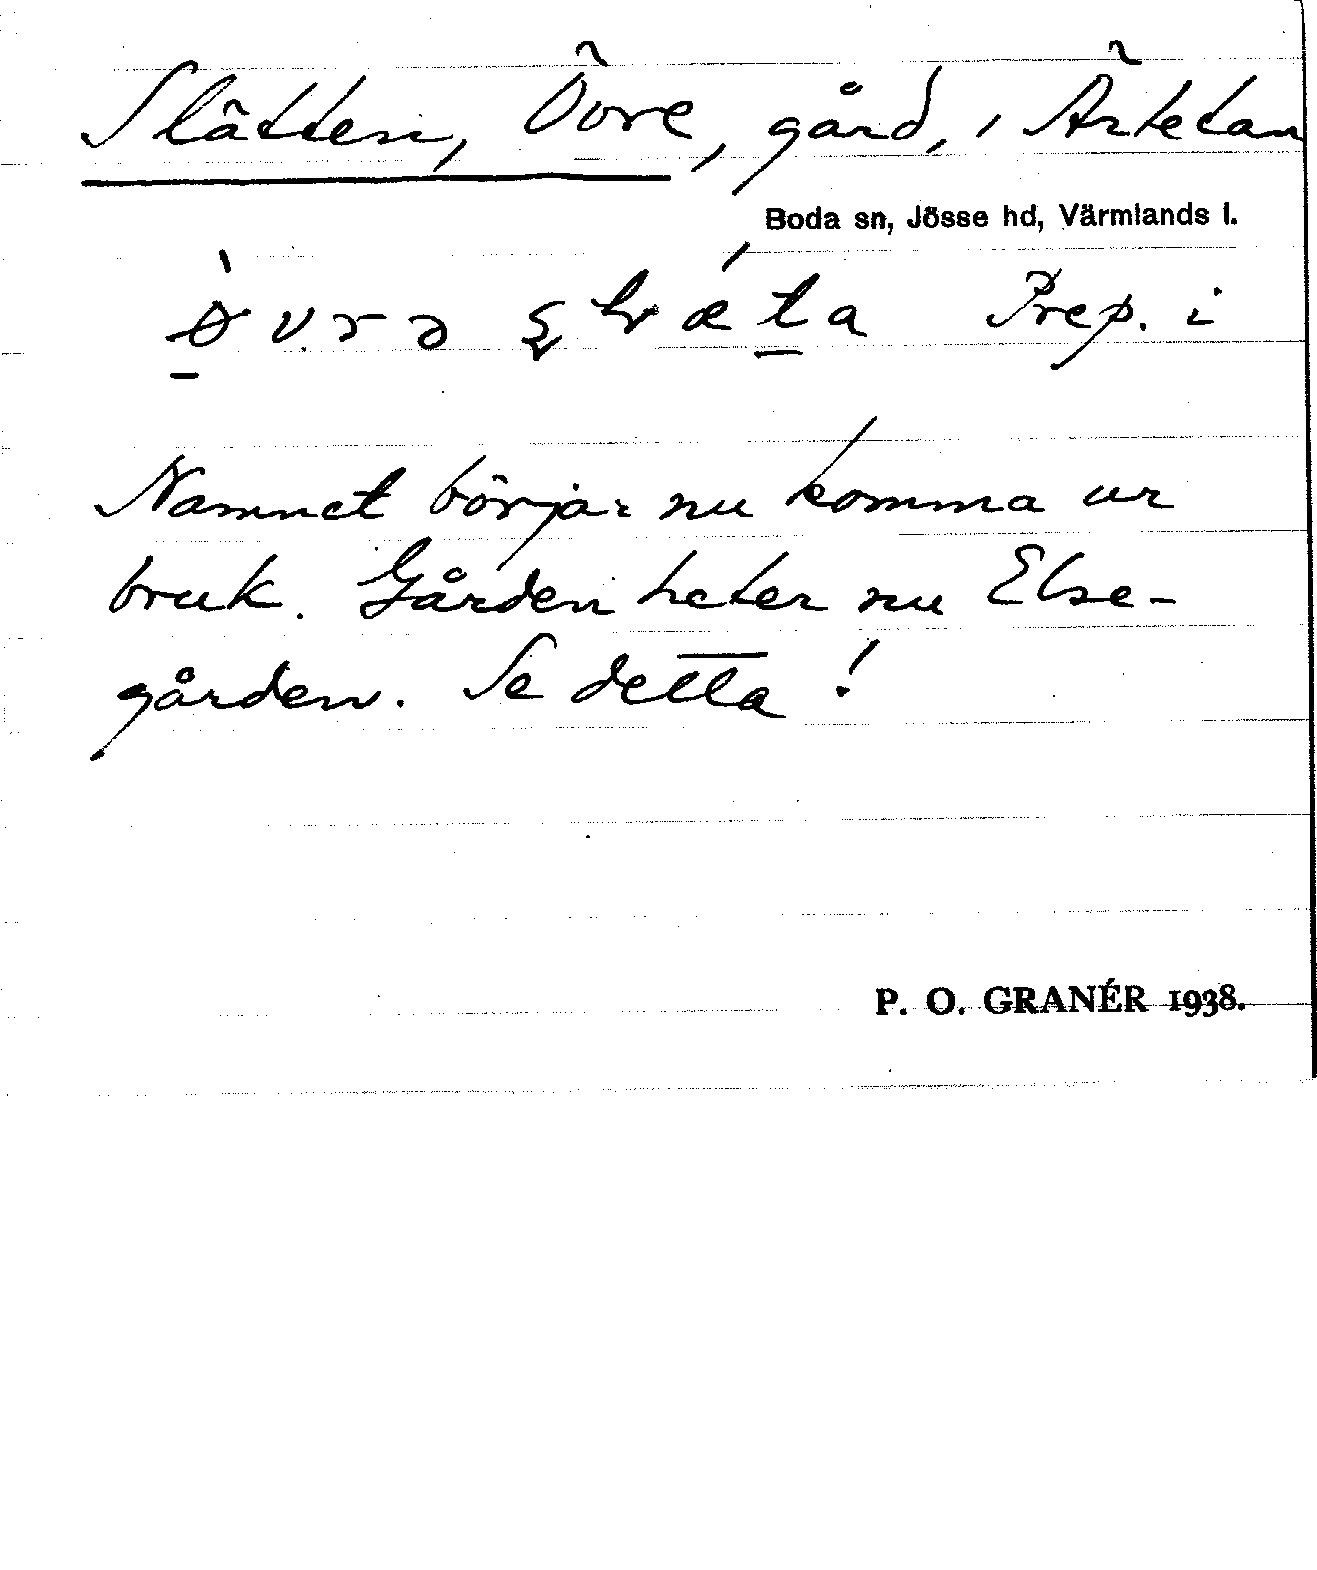 Slätten, Övre, gård, i Ärtetan
Boda sn, Jösse hd, Värmlands l.
Prep. i
Namnet börjar nu komma ur
bruk. Gården heter nu Else-
gården. Se detta!
P. O. GRANÉR 1938.